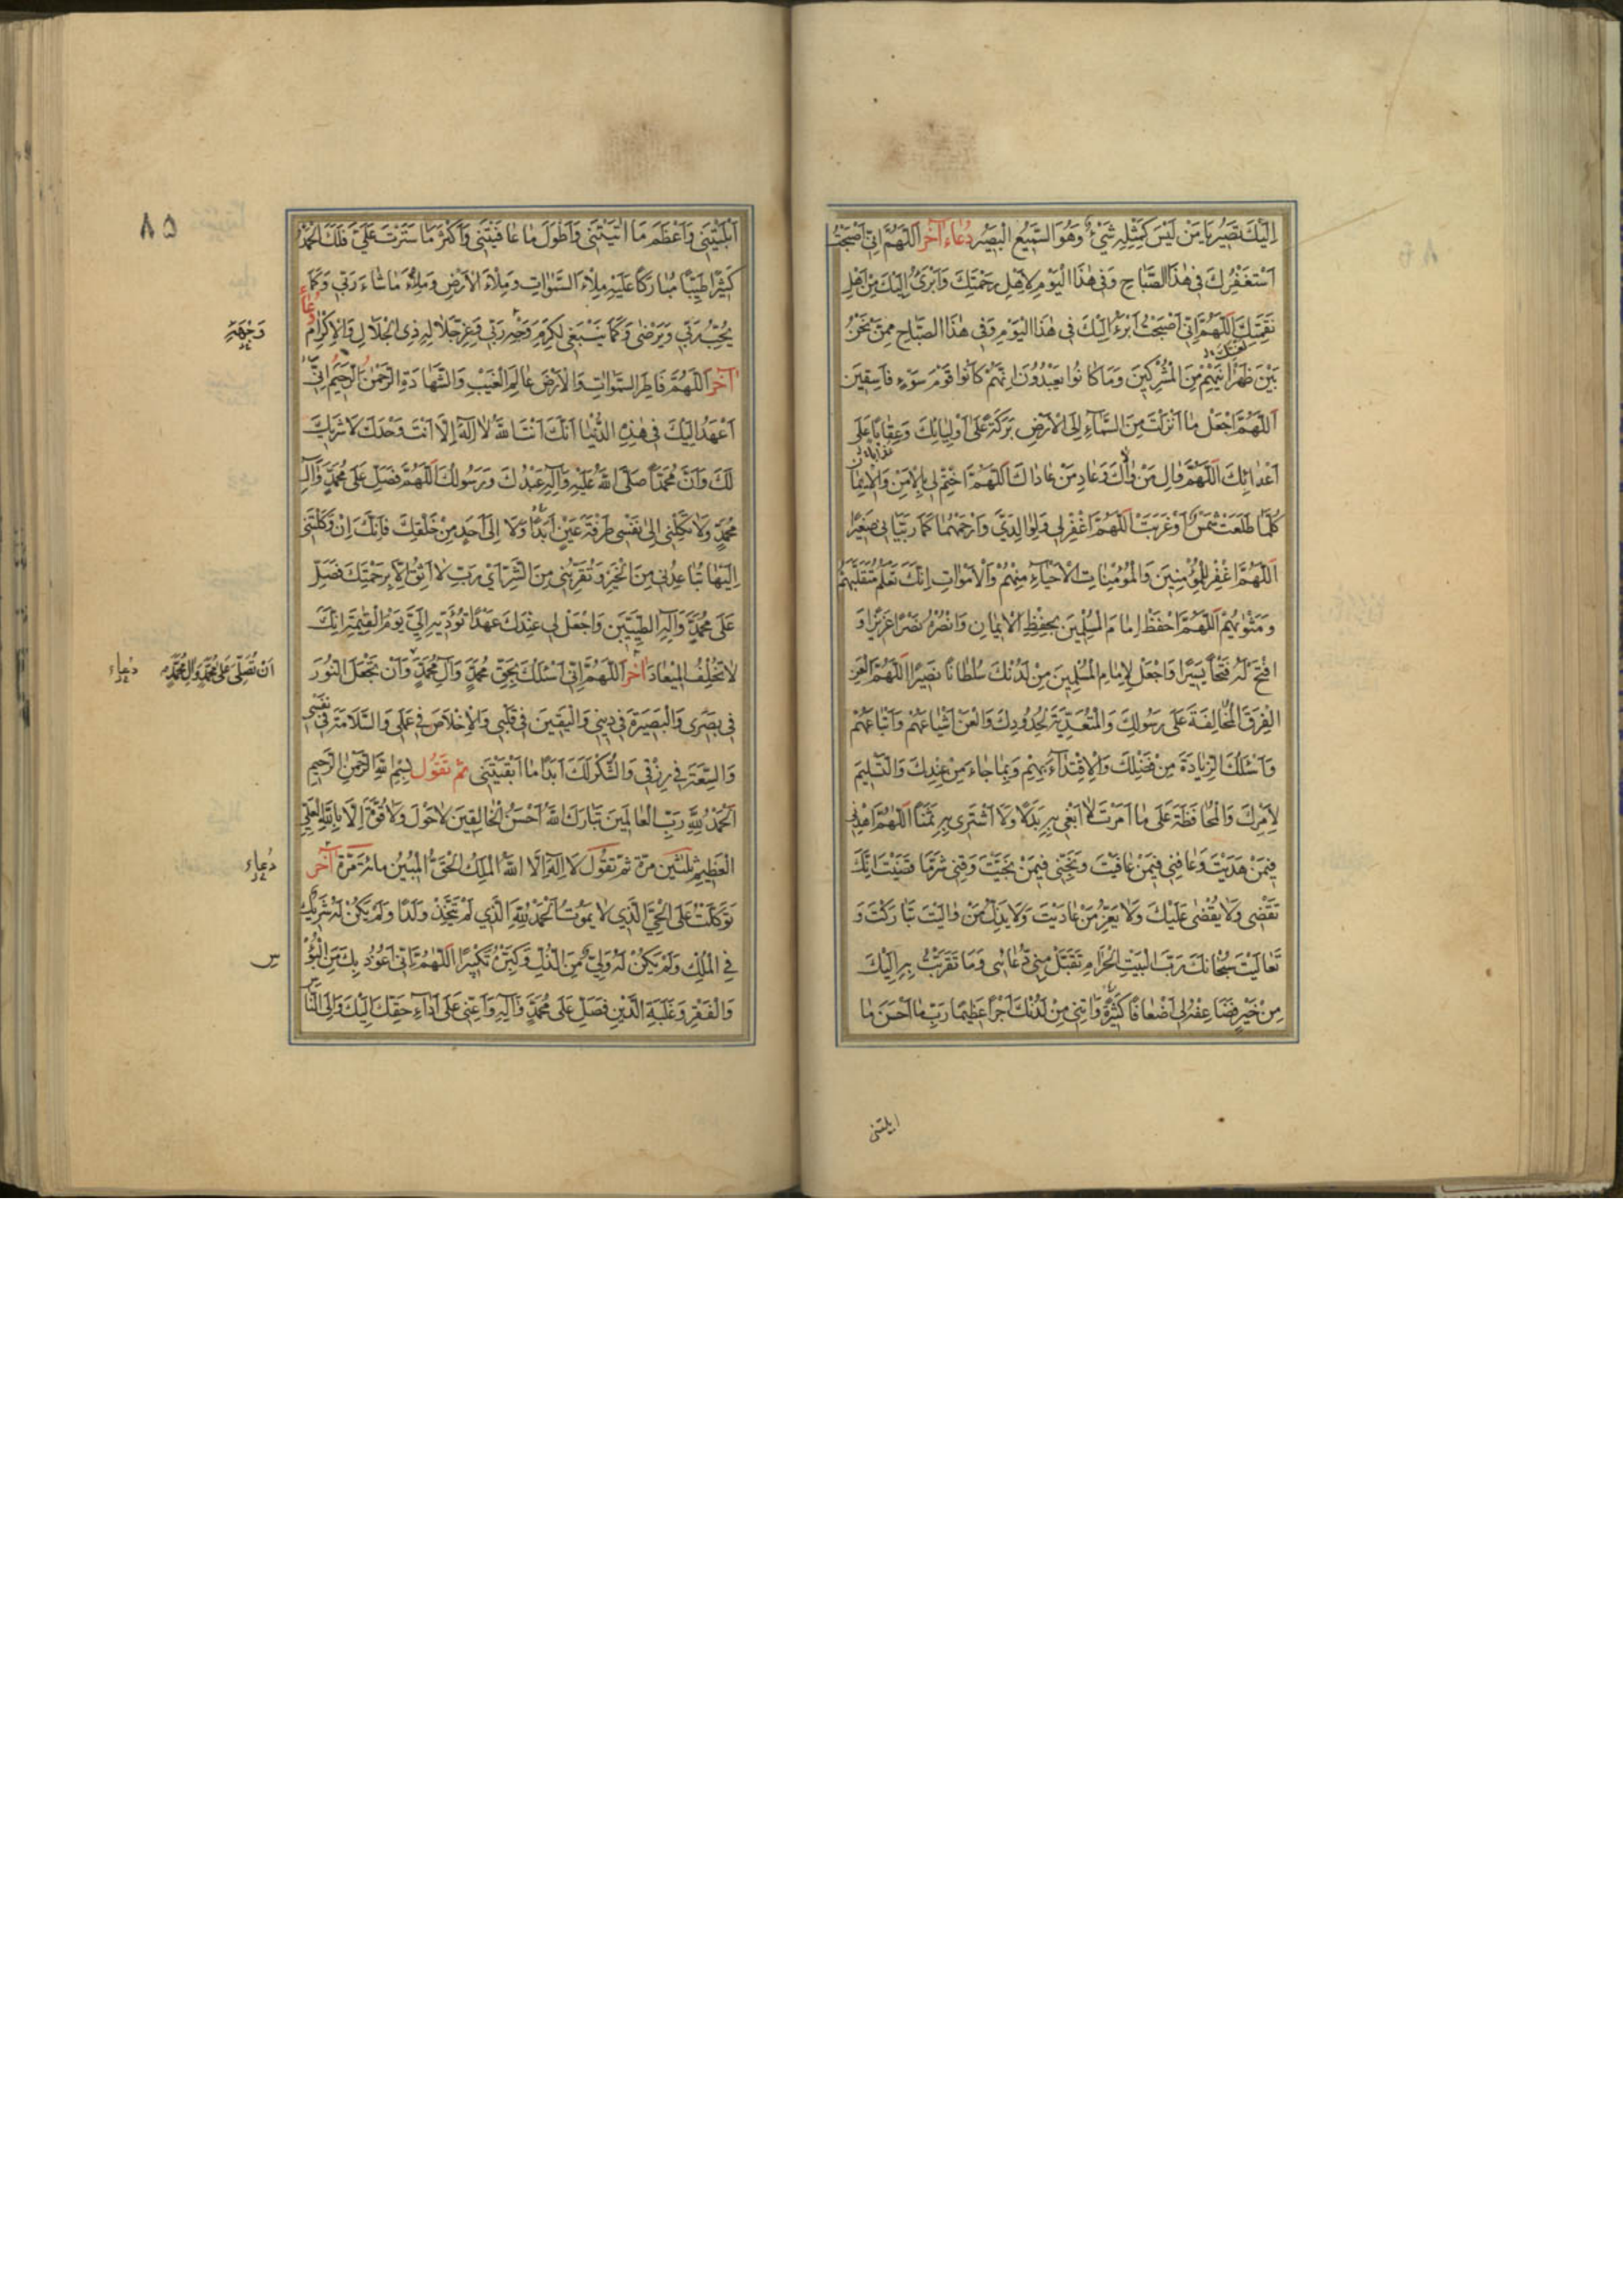 اِلَيْكَ تَصيرُ يَا مَنْ لَيْسَ كَمِثْلِهِ شَيْءٌ وَهُوَ السَّميعُ الْبَصيرُ دُعَاء آخَر اَللّهُمَّ اِنّي اَصْبَحْتُ
اَسْتَغْفِرُكَ في هٰذَا الصَّبَاحِ وَفي هٰذَا الْيَوْمِ لِاَهْلِ رَحْمَتِكَ وَاَبْرَءُ اِلَيْكَ مِنْ اَهْلِ
نَقِمَتِكَ اَللّهُمَّ اِنّي اَصْبَحْتُ اَبْرَءُ اِلَيْكَ في هٰذَا الْيَوْمِ وَفي هٰذَا الصَّبَاحِ مِمَّنْ نَحْنُ
لعنتك
بَيْنَ ظَهْرَانَيْهِمْ مِنَ الْمُشْرِكينَ وَمَا كَانُوا يَعْبُدُونَ اِنَّهُمْ كَانُوا قَوْمَ سَوْءٍ فَاسِقينَ
اَللّهُمَّ اجْعَلْ مَا اَنْزَلْتَ مِنَ السَّمَاءِ اِلَى الْاَرْضِ بَرَكَةً عَلَى اَوْلِيَائِكَ وَعِقَابًا عَلَى
عذابا
اَعْدَائِكَ اَللّهُمَّ وَالِ مَنْ وَالَاكَ وَعَادِ مَنْ عَادَاكَ اَللّهُمَّ اخْتِمْ لي بِالْاَمْنِ وَالْايمَانِ
كُلَّمَا طَلَعَتْ شَمْسٌ اَوْ غَرَبَتْ اَللّهُمَّ اغْفِرْ لي وَلِوَالِدَيَّ وَارْحَمْهُمَا كَمَا رَبَّيَاني صَغيرًا
اَللّهُمَّ اغْفِرْ لِلْمُؤْمِنينَ وَالْمُؤْمِنَاتِ الْاَحْيَاءِ مِنْهُمْ وَالْاَمْوَاتِ اِنَّكَ تَعْلَمُ مُتَقَلَّبَهُمْ
وَمَثْوَيهُمْ اَللّهُمَّ احْفَظْ اِمَامَ الْمُسْلِمينَ بِحِفْظِ الْايمَانِ وَانْصُرْهُ نَصْرًا عَزيزًا وَ
افْتَحْ لَهُ فَتْحًا يَسيرًا وَاجْعَلْ لِاِمَامِ الْمُسْلِمينَ مِنْ لَدُنْكَ سُلْطَانًا نَصيرًا اَللّهُمَّ الْعَنِ
الْفِرَقَ الْمُخَالِفَةَ عَلَى رَسُولِكَ وَالْمُتَعَدِّيَةَ لِحُدُودِكَ وَالْعَنْ اَشْيَاعَهُمْ وَاَتْبَاعَهُمْ
وَاَسْئَلُكَ الزِّيَادَةَ مِنْ فَضْلِكَ وَالْاِقْتِدَاءَ بِهِمْ وَبِمَا جَاءَ مِنْ عِنْدِكَ وَالتَّسْليمَ
لِاَمْرِكَ وَالْمُحَافَظَةَ عَلَى مَا اَمَرْتَ لَا اَبْغي بِهِ بَدَلًا وَلَا اَشْتَري بِهِ ثَمَنًا اَللّهُمَّ اهْدِني
فيمَنْ هَدَيْتَ وَعَافِني فيمَنْ عَافَيْتَ وَنَجِّني فيمَنْ نَجَّيْتَ وَقِني شَرَّ مَا قَضَيْتَ اِنَّكَ
تَقْضي وَلَا يُقْضٰى عَلَيْكَ وَلَا يَعِزُّ مَنْ عَادَيْتَ وَلَا يَذِلُّ مَنْ وَالَيْتَ تَبَارَكْتَ وَ
تَعَالَيْتَ سُبْحَانَكَ رَبَّ الْبَيْتِ الْحَرَامِ تَقَبَّلْ مِنّي دُعَائي وَمَا تَقَرَّبْتُ بِهِ اِلَيْكَ
مِنْ خَيْرٍ فَضَاعِفْهُ لي اَضْعَافًا كَثيرَةً وَاٰتِني مِنْ لَدُنْكَ اَجْرًا عَظيمًا رَبِّ مَا اَحْسَنَ مَا
ابليتني
٨٥
اَبْلَيْتَني وَاَعْظَمَ مَا اٰتَيْتَني وَاَطْوَلَ مَا عَافَيْتَني وَاَكْثَرَ مَا سَتَرْتَ عَلَيَّ فَلَكَ الْحَمْدُ
كَثيرًا طَيِّبًا مُبَارَكًا عَلَيْهِ مِلْاَءَ السَّمٰوَاتِ وَمِلْاَءَ الْاَرْضِ وَمِلْاَءَ مَا شَاءَ رَبّي وَكَمَا
يُحِبُّ رَبّي وَيَرْضٰى وَكَمَا يَنْبَغي لِكَرَمِ وَجْهِ رَبّي وَعِزِّ جَلَالِهِ ذِي الْجَلَالِ وَالْاِكْرَامِ دُعَاء
وَجْهِهِ
آخَر اَللّهُمَّ فَاطِرَ السَّمٰوَاتِ وَالْاَرْضِ عَالِمَ الْغَيْبِ وَالشَّهَادَةِ الرَّحْمٰنُ الرَّحيمُ اِنّي
اَعْهَدُ اِلَيْكَ في هٰذِهِ الدُّنْيَا اَنَّكَ اَنْتَ اللّٰهُ لَا اِلٰهَ اِلَّا اَنْتَ وَحْدَكَ لَا شَريكَ
لَكَ وَاَنَّ مُحَمَّدًا صَلَّى اللّٰهُ عَلَيْهِ وَاٰلِهِ عَبْدُكَ وَرَسُولُكَ اَللّهُمَّ فَصَلِّ عَلَى مُحَمَّدٍ وَاٰلِ
مُحَمَّدٍ وَلَا تَكِلْني اِلٰى نَفْسي طَرْفَةَ عَيْنٍ اَبَدًا وَلَا اِلَى اَحَدٍ مِنْ خَلْقِكَ فَاِنَّكَ اِنْ وَكَلْتَني
اِلَيْهَا تُبَاعِدُني مِنَ الْخَيْرِ وَتُقَرِّبُني مِنَ الشَّرِّ اَيْ رَبِّ لَا اَثِقُ اِلَّا بِرَحْمَتِكَ فَصَلِّ
عَلَى مُحَمَّدٍ وَاٰلِهِ الطَّيِّبينَ وَاجْعَلْ لي عِنْدَكَ عَهْدًا تُؤَدّيهِ اِلَيَّ يَوْمَ الْقِيٰمَةِ اِنَّكَ
لَا تُخْلِفُ الْميعَادَ آخَر اَللّهُمَّ اِنّي اَسْئَلُكَ بِحَقِّ مُحَمَّدٍ وَاٰلِ مُحَمَّدٍ وَاَنْ تَجْعَلَ النُّورَ
اَنْ تُصَلِّيَ عَلَى مُحَمَّدٍ وَاٰلِ مُحَمَّدٍ
دُعَاء
في بَصَري وَالْبَصيرَةَ في ديني وَالْيَقينَ في قَلْبي وَالْاِخْلَاصَ في عَمَلي وَالسَّلَامَةَ في نَفْسي
وَالسَّعَةَ في رِزْقي وَالشُّكْرَ لَكَ اَبَدًا مَا اَبْقَيْتَني ثُمَّ تَقُول بِسْمِ اللّٰهِ الرَّحْمٰنِ الرَّحيمِ
اَلْحَمْدُ لِلّٰهِ رَبِّ الْعَالَمينَ تَبَارَكَ اللّٰهُ اَحْسَنُ الْخَالِقينَ لَا حَوْلَ وَلَا قُوَّةَ اِلَّا بِاللّٰهِ الْعَلِيِّ
الْعَظيمِ ثَلٰثينَ مَرّة ثُمَّ تَقُول لَا اِلٰهَ اِلَّا اللّٰهُ الْمَلِكُ الْحَقُّ الْمُبينُ مائة مَرّة آخَر
دُعَاء
تَوَكَّلْتُ عَلَى الْحَيِّ الَّذي لَا يَمُوتُ اَلْحَمْدُ لِلّٰهِ الَّذي لَمْ يَتَّخِذْ وَلَدًا وَلَمْ يَكُنْ لَهُ شَريكٌ
فِي الْمُلْكِ وَلَمْ يَكُنْ لَهُ وَلِيٌّ مِنَ الذُّلِّ وَكَبِّرْهُ تَكْبيرًا اَللّهُمَّ اِنّي اَعُوذُ بِكَ مِنَ الْبُؤْ
س
وَالْفَقْرِ وَغَلَبَةِ الدَّيْنِ فَصَلِّ عَلَى مُحَمَّدٍ وَاٰلِهِ وَاَعِنّي عَلَى اَدَاءِ حَقِّكَ اِلَيْكَ وَاِلَى النَّاسِ